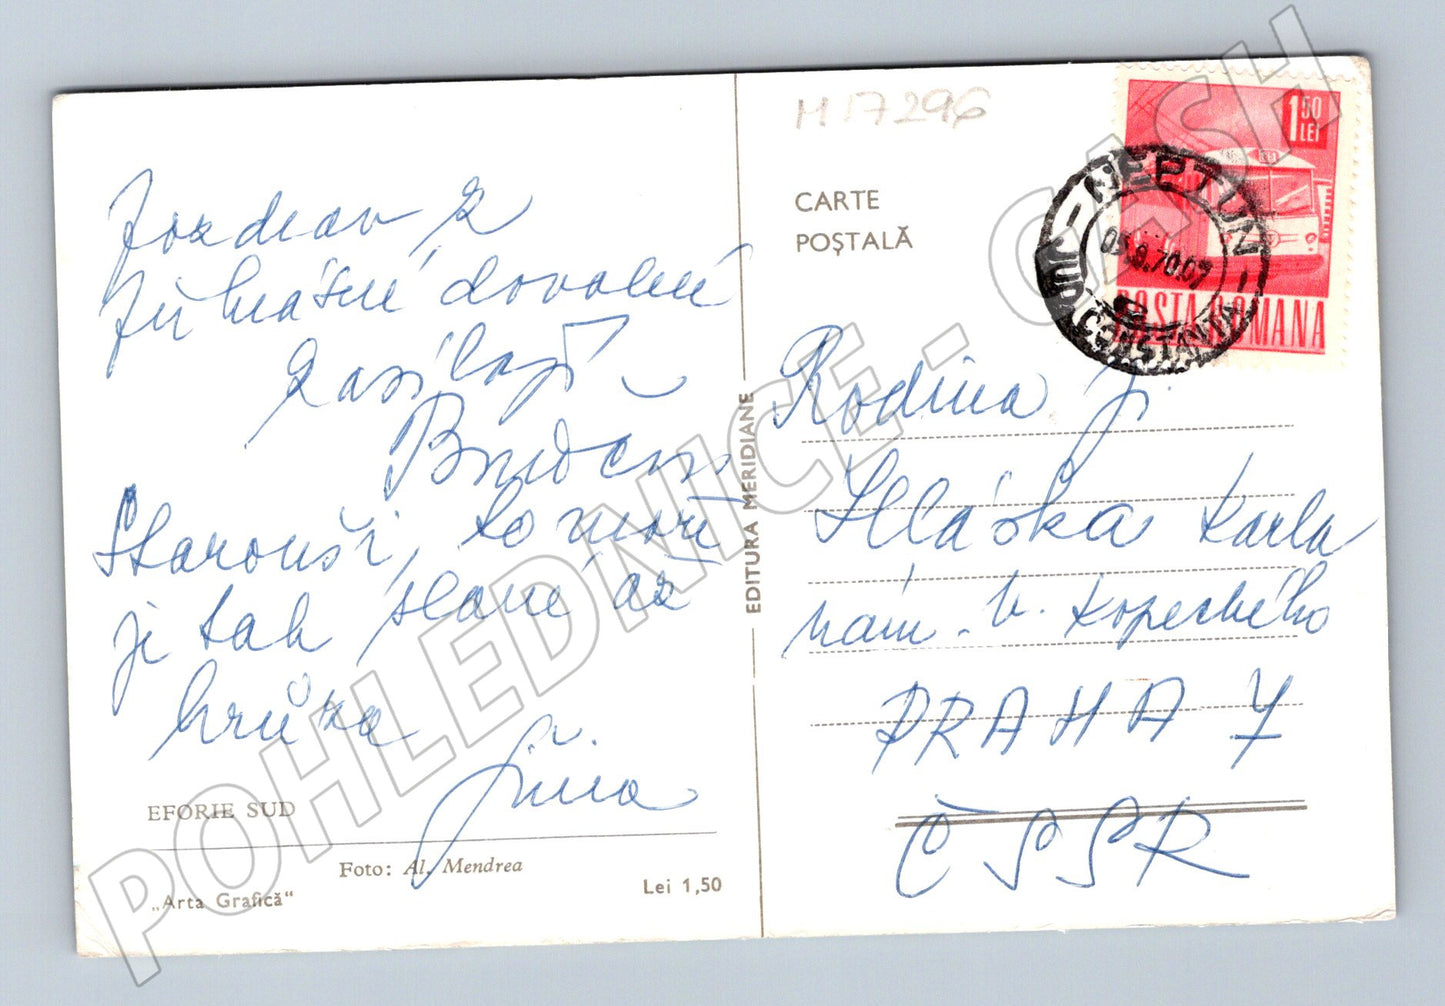 Pozdrav z
přikrásné dovolené
zasílají
Starouši, to moře
je tak slané až
hrůza
Jiřina
EFORIE SUD
Foto: Al. Mendrea
„Arta Grafică"
Lei 1,50
EDITURA MERIDIANE
M 17296
CARTE
POȘTALĂ
1,50
LEI
POSTA ROMANA
NEPTUN
05.8.70.07
JUD. CONSTANTA
Rodina J.
Hláska Karla
nám. V. Kopeckého
PRAHA 7
ČSSR
POHLEDNICE - CASH